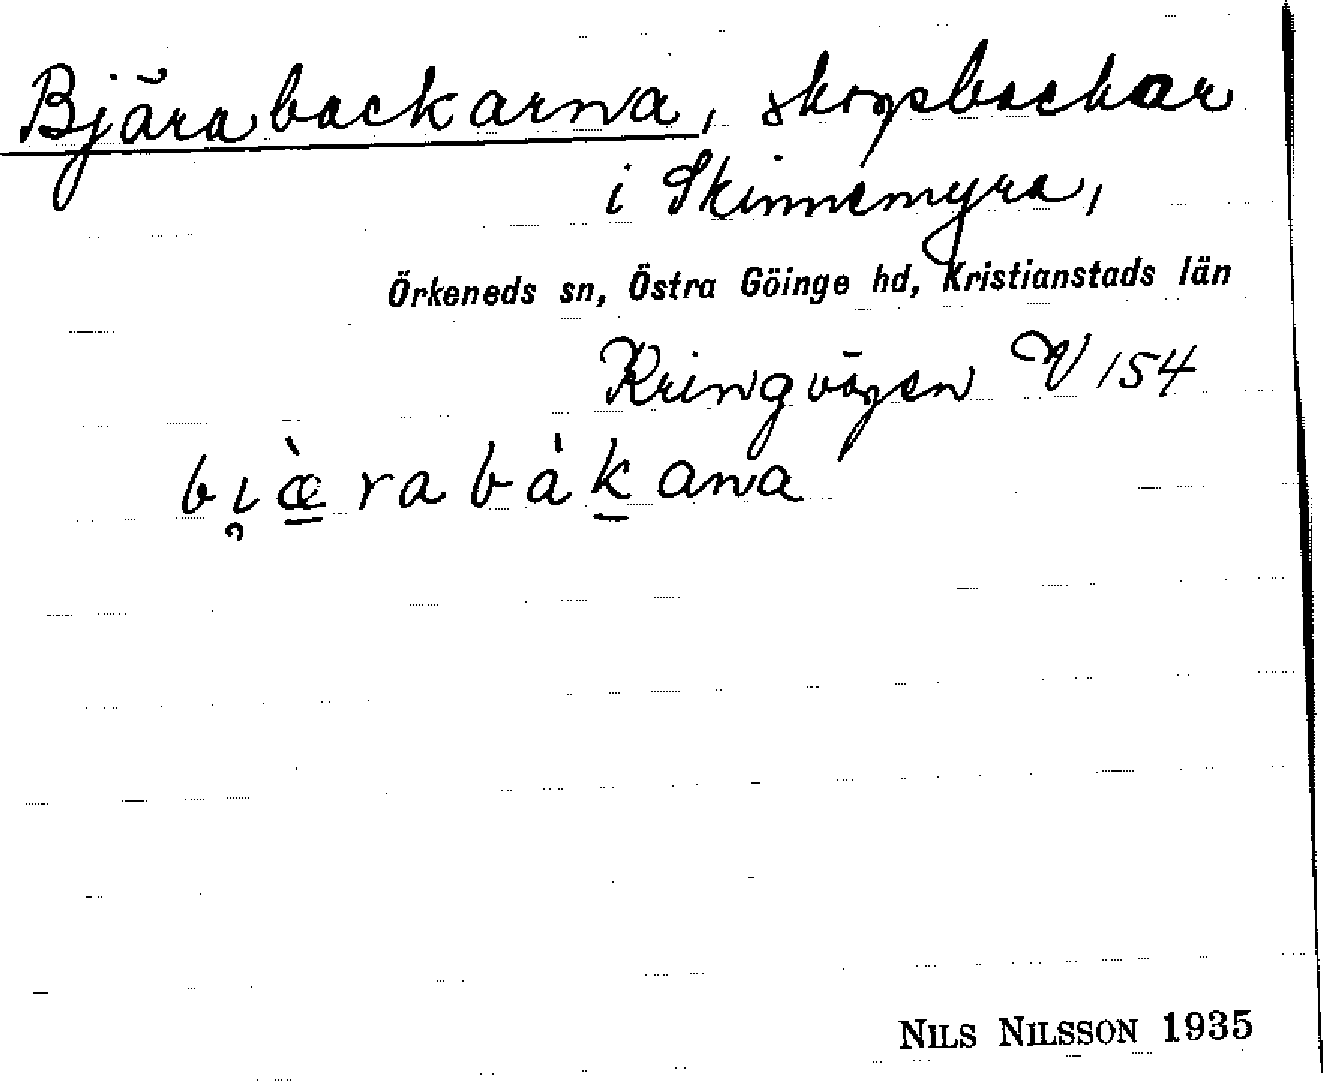 Bjärabackarna, skogsbackar
i Skinnemyra,
Örkeneds sn, Östra Göinge hd, Kristianstads län
Kringvägen V 154
bı̯æ̀rabàkana
NILS NILSSON 1935